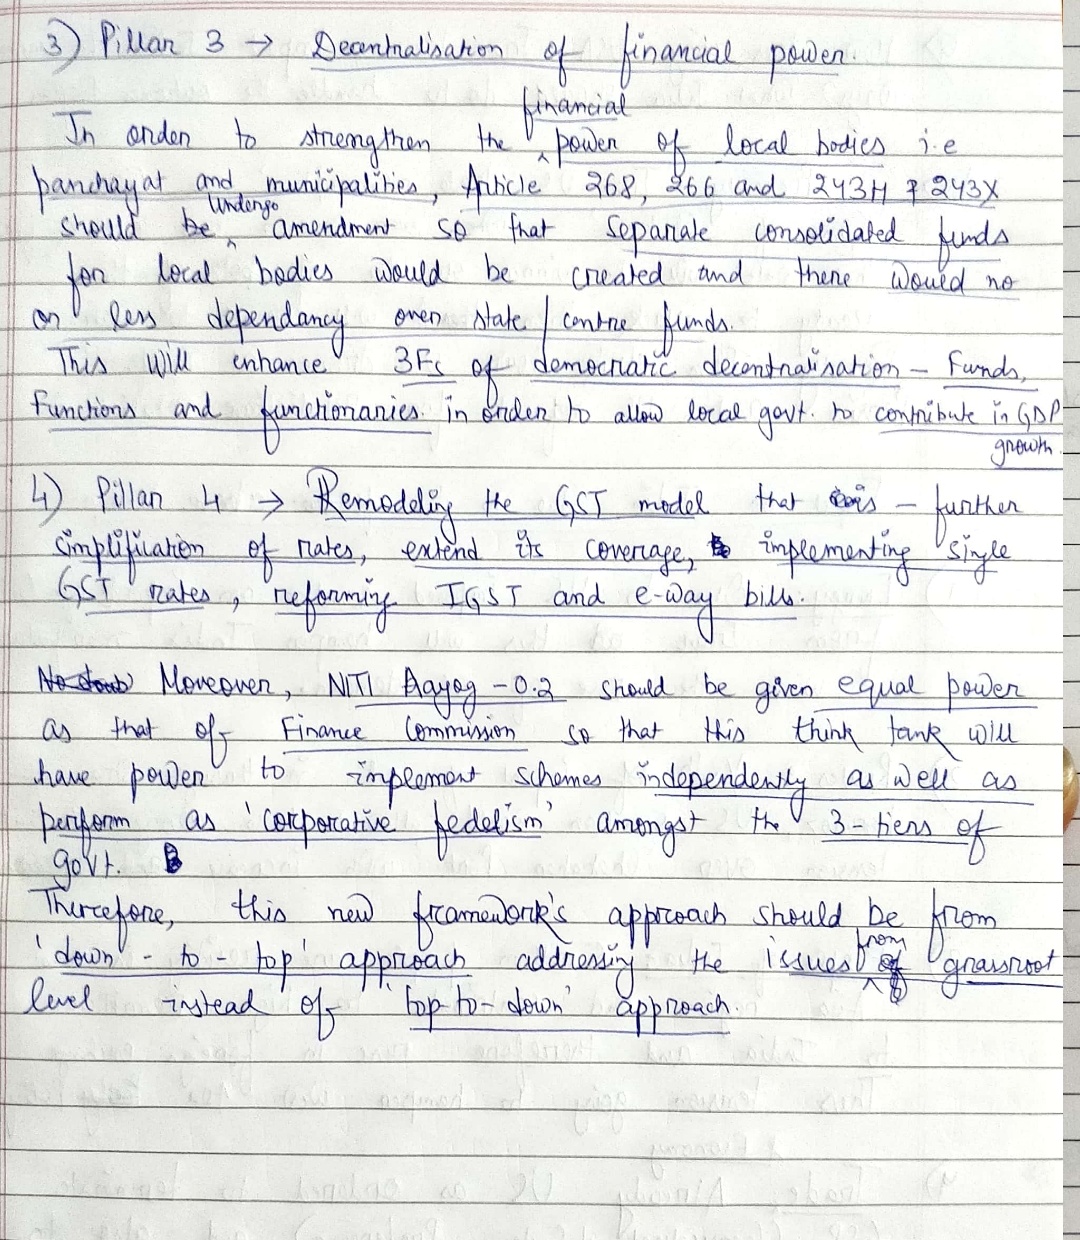 3) Pillar 3 → Decentralisation of financial power.
financial
In order to strengthen the ^ power of local bodies i.e
panchayat and municipalities, Article 268, 266 and 243H & 243X
undergo
should be ^ amendment so that separate consolidated funds
for local bodies would be created and there would no
or less dependancy over state / centre funds.
This will enhance 3Fs of democratic decentralisation – Funds,
Functions and functionaries in order to allow local govt. to contribute in GDP
growth
4) Pillar 4 → Remodeling the GST model that is – further
simplification of rates, extend its coverage, implementing single
GST rates, reforming IGST and e-way bills.
No doub Moreover, NITI Aayog – 0.2 should be given equal power
as that of Finance Commission so that this think tank will
have power to implement schemes independently as well as
perform as 'corporative fedelism' amongst the 3-tiers of
govt.
Therefore, this new framework's approach should be from
'down-to-top' approach addressing the issues ^ grassroot
from
level instead of 'top-to-down' approach.